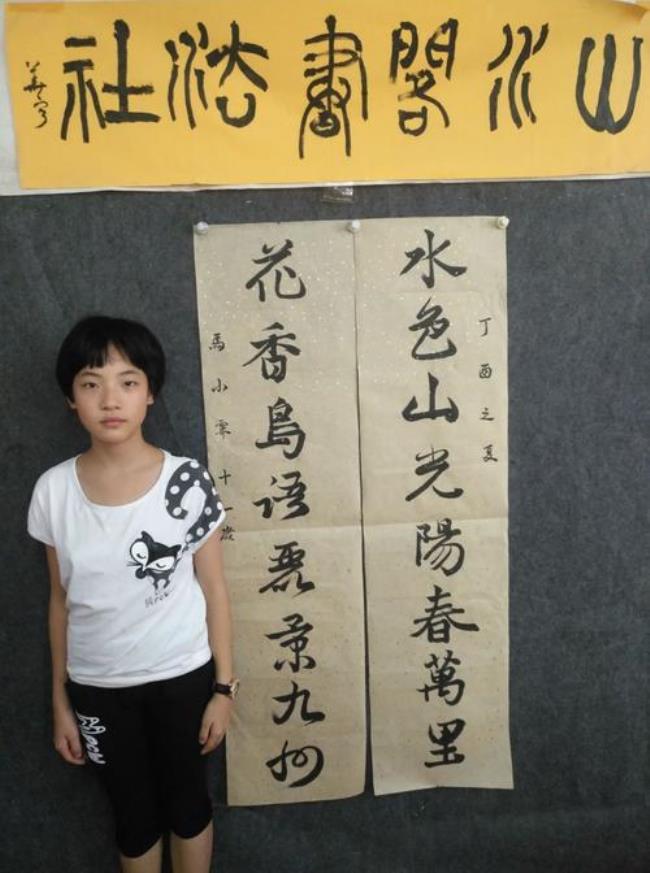 山水閣書法社
丁酉之夏
水色山光陽春萬里
花香鳥语麗景九州
馬小 十一歲